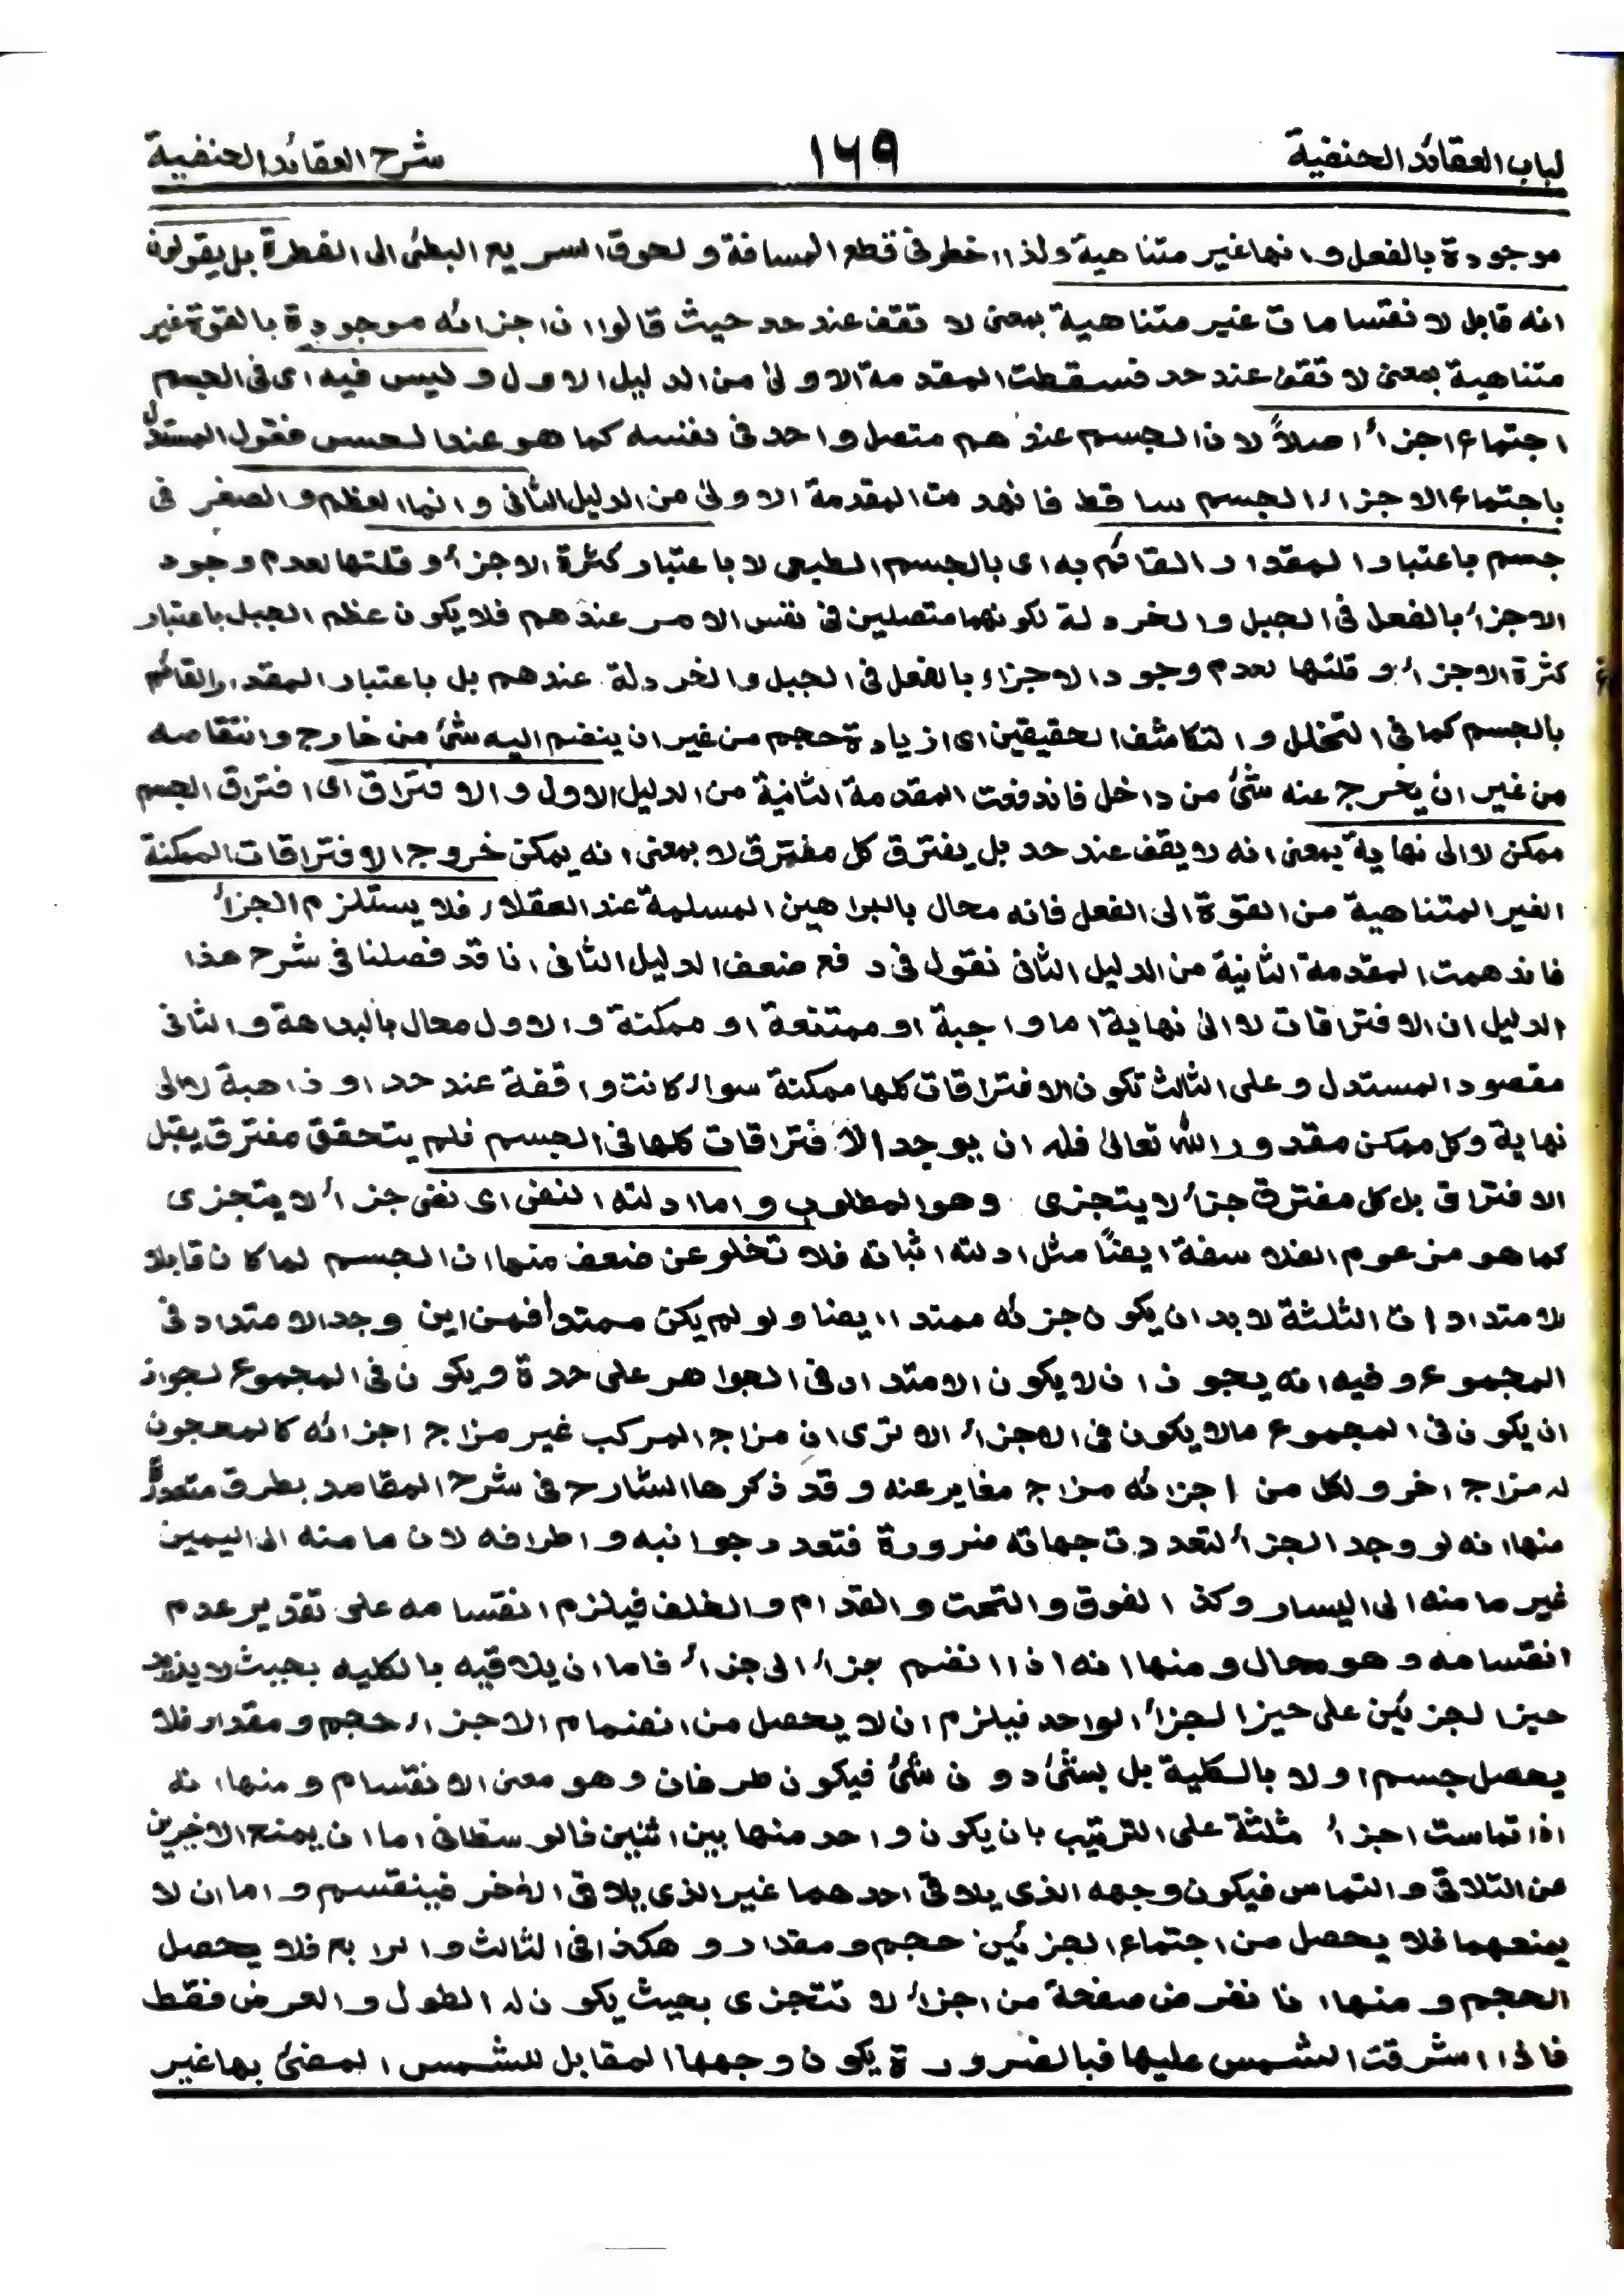 لباب العقائد الحنفية ١٦٩ شرح العقائد الحنفية
موجودة بالفعل و انها غير متناهية ولذا اضطر فى قطع المسافة و لحوق السريع البطئ الى الفطرة بل يقولون
انه قابل لا نقسامات غير متناهية بمعنى لا تقف عند حد حيث قالوا ان اجزائه موجودة بالقوة غير
متناهية بمعنى لا تقف عند حد فسقطت المقدمة الاولىٰ من الدليل الاول و ليس فيه اى فى الجسم
اجتماع اجزاء اصلاً لان الجسم عند هم متصل واحد فى نفسه كما هو عند الحس فقول المستدل
باجتماع الاجزاء الجسم ساقط فانهدمت المقدمة الاولىٰ من الدليل الثانى و انما العظم و الصغر فى
جسم باعتبار المقدار القائم به اى بالجسم الطبيعى لا باعتبار كثرة الاجزأ و قلتها لعدم وجود
الاجزأ بالفعل فى الجبل و الخردلة لكونهما متصلين فى نفس الامر عند هم فلا يكون عظم الجبل باعتبار
كثرة الاجزأ و قلتها لعدم وجود الاجزاء بالفعل فى الجبل و الخردلة عندهم بل باعتبار المقدار القائم
بالجسم كما فى التخلل و التكاثف الحقيقين اى ازيادة حجم من غير ان ينضم اليه شئ من خارج و انتقاصه
من غير ان يخرج عنه شئ من داخل فاندفعت المقدمة الثانية من الدليل الاول و الافتراق اى افتراق الجسم
ممكن لا الى نهاية بمعنى انه لا يقف عند حد بل يفترق كل مفترق لا بمعنى انه يمكن خروج الافتراقات الممكنة
الغير المتناهية من القوة الى الفعل فانه محال بالبراهين المسلمة عند العقلاء فلا يستلزم الجزأ
فاندهمت المقدمة الثانية من الدليل الثانى نقول فى دفع ضعف الدليل الثانى انا قد فصلنا فى شرح هذا
الدليل ان الافتراقات لا الىٰ نهاية اما واجبة او ممتنعة او ممكنة و الاول محال بالبداهة و الثانى
مقصود المستدل و على الثالث تكون الافتراقات كلها ممكنة سواء كانت واقفة عند حد او ذاهبة لا الى
نهاية و كل ممكن مقدور الله تعالىٰ فله ان يوجد الافتراقات كلها فى الجسم فلم يتحقق مفترق يقبل
الافتراق بل كل مفترق جزأ لا يتجزى وهو المطلوب و اما ادلته النفى اى نفى جزأ لا يتجزى
كما هو مزعوم الفلاسفة ايضًا مثل ادلته اثباته فلا تخلو عن ضعف منها ان الجسم لما كان قابلا
لامتدادات الثلثة لا بد ان يكون جزئه ممتدا ايضا و لو لم يكن ممتداً فمن اين وجد الامتداد فى
المجموع و فيه انه يجوز ان لا يكون الامتداد فى الجواهر على حدة و يكون فى المجموع لجواز
ان يكون فى المجموع مالا يكون فى الاجزأ الا ترى ان مزاج المركب غير مزاج اجزائه كالمعجون
له مزاج اخر و لكل من اجزائه مزاج مغاير عنه و قد ذكرها الشارح فى شرح المقاصد بطرق متعددة
منها انه لو وجد الجزأ لتعددت جهاته ضرورة فتعدد جوانبه و اطرافه لان ما منه الى اليمين
غير ما منه الى اليسار و كذا الفوق و التحت و القدام و الخلف فيلزم انقسامه على تقدير عدم
انقسامه و هو محال و منها انه اذا انضم جزأ الى جزأ فاما ان يلاقيه بالكليه بحيث لا يزيد
حيز الجزئين على حيز الجزأ الواحد فيلزم ان لا يحصل من انضمام الاجزاء حجم و مقدار فلا
يحصل جسم او لا بالكلية بل بشئ دون شئ فيكون طرفان و هو معنى الانقسام و منها انه
اذا تماست اجزأ ثلثة على الترتيب بان يكون واحد منها بين اثنين فالوسطانى اما ان يمنع الاخيرين
عن التلاقى و التماس فيكون وجهه الذى يلاقى احدهما غير الذى يلاقى الأخر فينقسم و اما ان لا
يمنعهما فلا يحصل من اجتماع الجزئين حجم و مقدار و هكذا فى الثالث و الرابع فلا يحصل
الحجم و منها انا نفرض صفحة من اجزأ لا تتجزى بحيث يكون له الطول و العرض فقط
فاذا اشرقت الشمس عليها فبالضرورة يكون وجهها المقابل للشمس المضئ بها غير